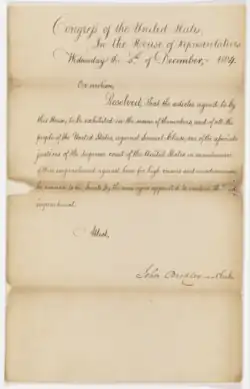 Congress of the United States,
In the House of Representatives
Wednesday the 5th of December, 1804.
On motion,
Resolved, That the articles agreed to by
this House, to be exhibited in the name of themselves, and of all the
people of the United States, against Samuel Chase, one of the associate
justices of the supreme court of the United States in maintenance
of their impeachment against him for high crimes and misdemeanors
be carried to the Senate by the managers appointed to conduct the said
impeachment.
Attest,
John Beckley Clerk